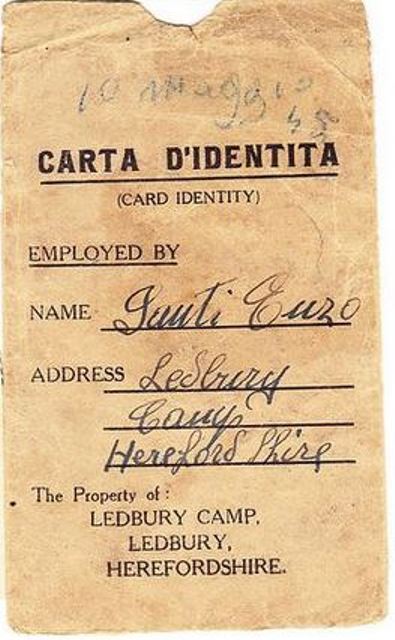 10 Maggio
45
CARTA D'IDENTITA
(CARD IDENTITY)
EMPLOYED BY
NAME Santi Enzo
ADDRESS Ledbury
Camp
Hereford Shire
The Property of :
LEDBURY CAMP,
LEDBURY,
HEREFORDSHIRE.